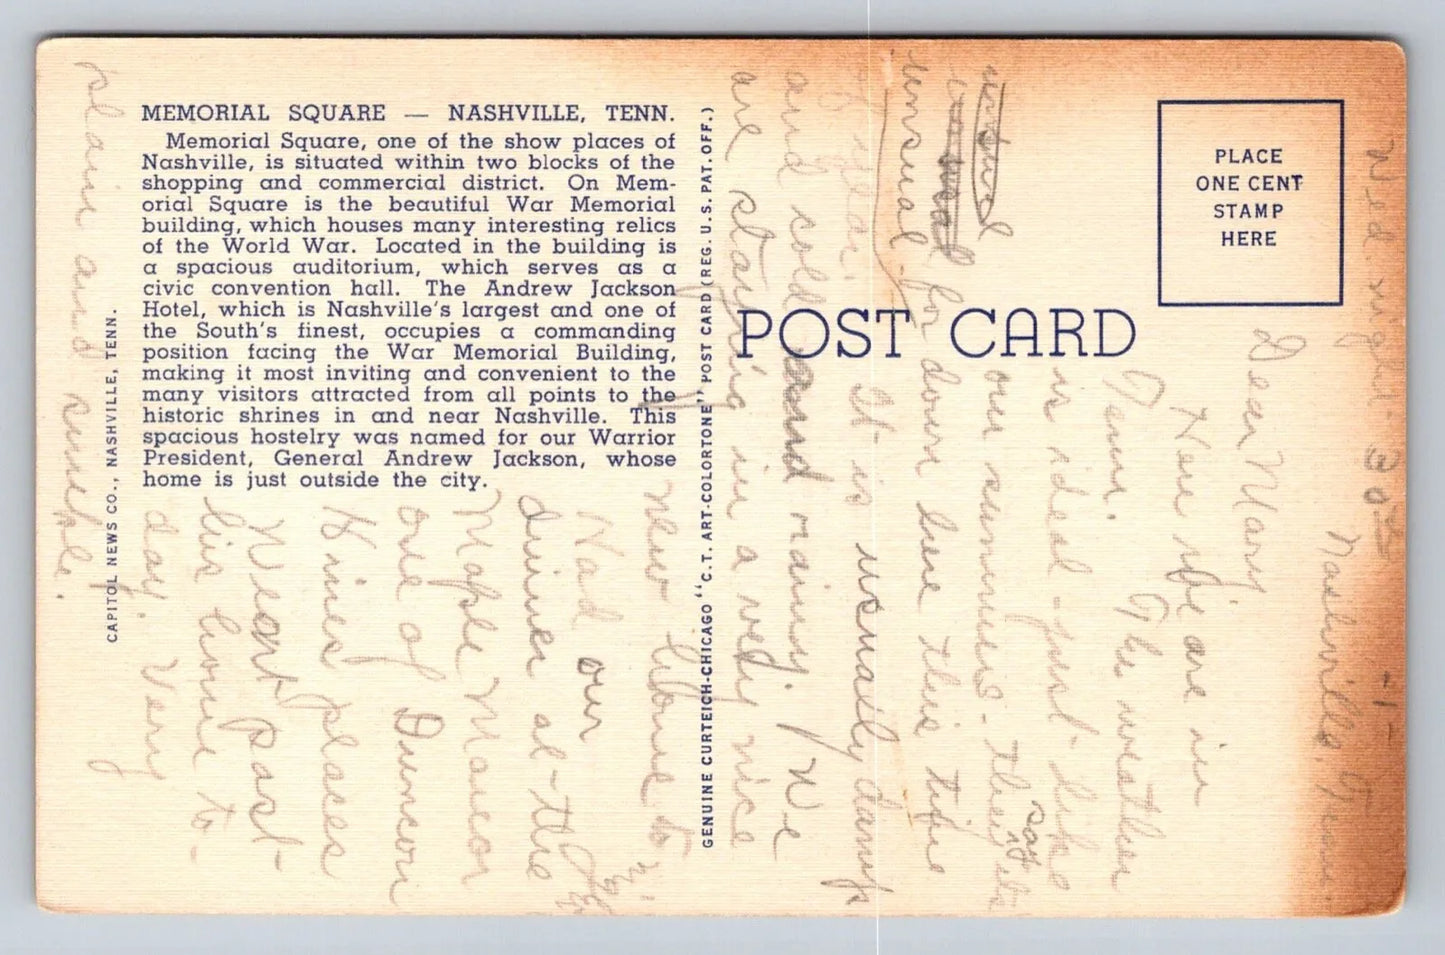 MEMORIAL SQUARE — NASHVILLE, TENN.
Memorial Square, one of the show places of
Nashville, is situated within two blocks of the
shopping and commercial district. On Mem-
orial Square is the beautiful War Memorial
building, which houses many interesting relics
of the World War. Located in the building is
a spacious auditorium, which serves as a
civic convention hall. The Andrew Jackson
Hotel, which is Nashville's largest and one of
the South's finest, occupies a commanding
position facing the War Memorial Building,
making it most inviting and convenient to the
many visitors attracted from all points to the
historic shrines in and near Nashville. This
spacious hostelry was named for our Warrior
President, General Andrew Jackson, whose
home is just outside the city.
CAPITOL NEWS CO., NASHVILLE, TENN.
GENUINE CURTEICH-CHICAGO "C.T. ART-COLORTONE" POST CARD (REG. U.S. PAT. OFF.)
POST CARD
PLACE
ONE CENT
STAMP
HERE
-1-
Wed. night. 30
Nashville, Tenn.
Dear Mary,
Here we are in
Tenn. The weather
is ideal - just like
our summers. They say
unusual for down here this time
of year.
It is usually damp
and cold and rainy. We
are staying in a very nice
new home to
Had our
dinner at the
Maple Manor
one of Duncan
Hines places
Went past
his home to-
day. Very
plain and simple.